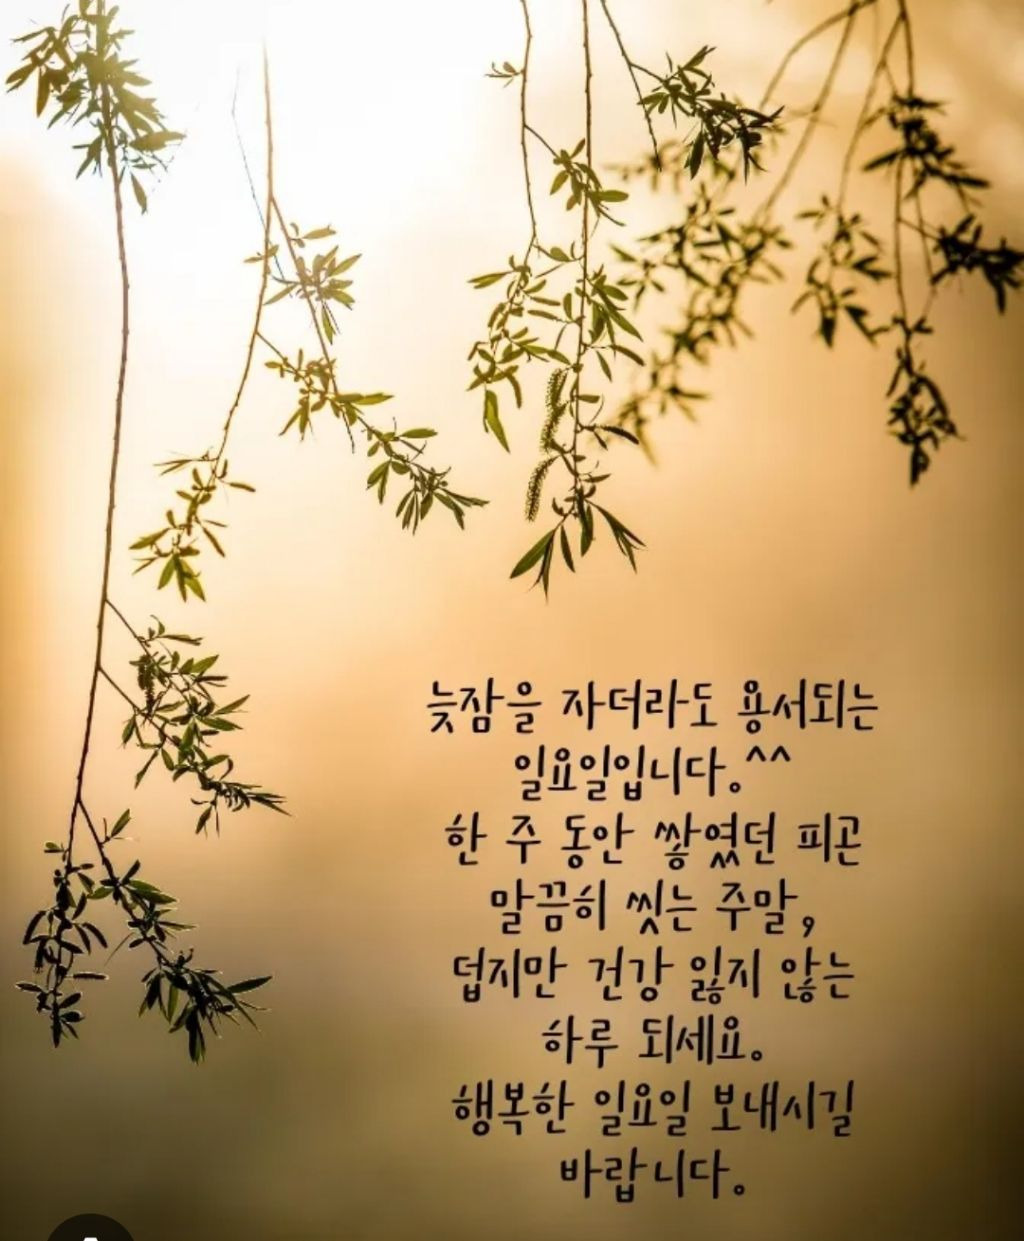 늦잠을 자더라도 용서되는
일요일입니다.^^
한 주 동안 쌓였던 피곤
말끔히 씻는 주말,
덥지만 건강 잃지 않는
하루 되세요.
행복한 일요일 보내시길
바랍니다.